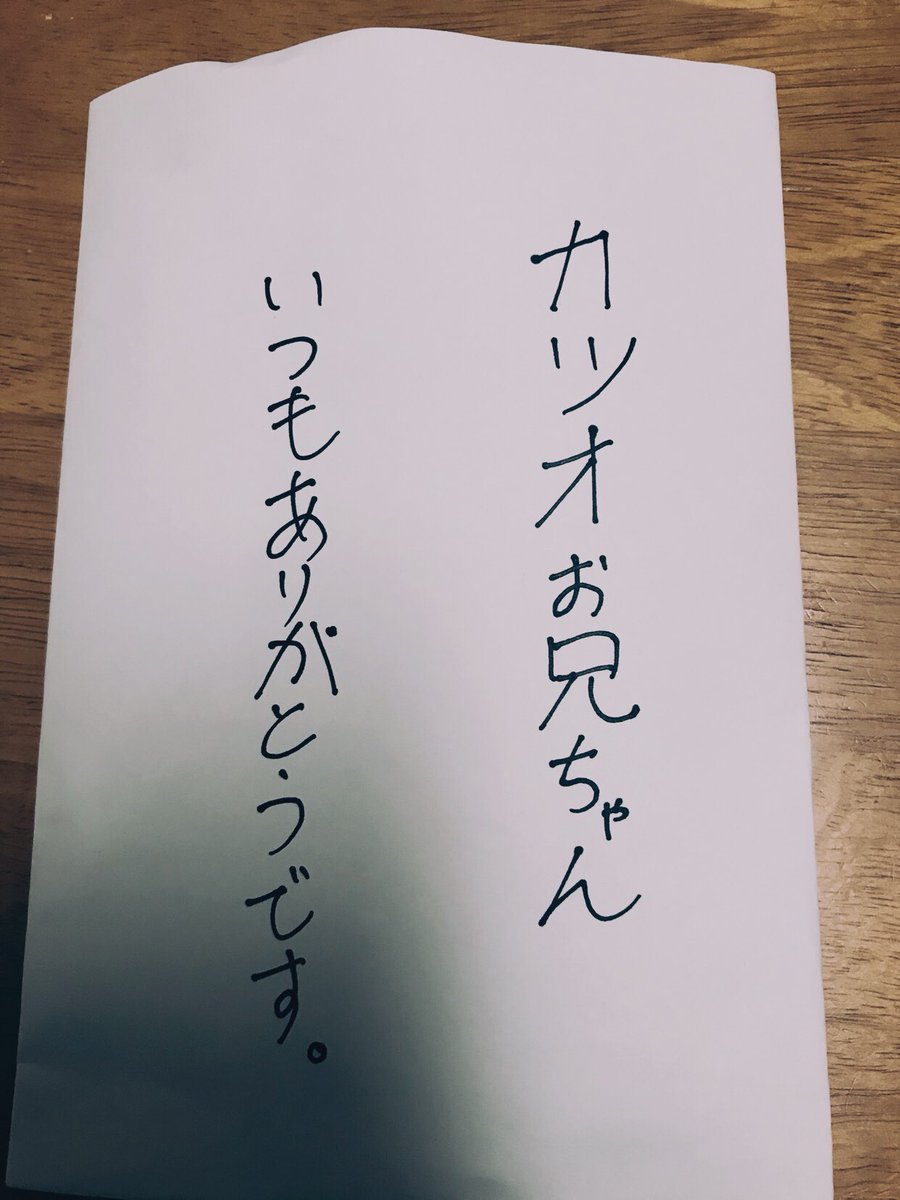 カツオお兄ちゃん
いつもありがとうです。